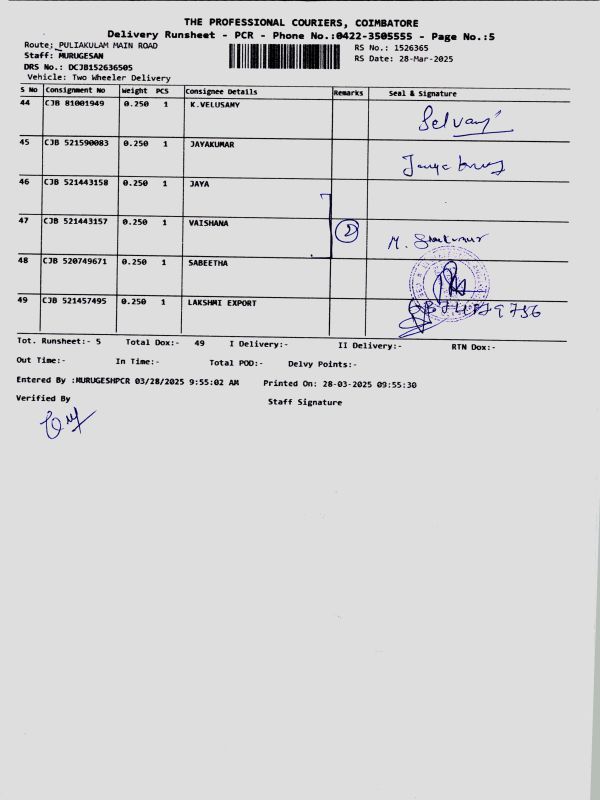 THE PROFESSIONAL COURIERS, COIMBATORE
Delivery Runsheet - PCR - Phone No.:0422-3505555 - Page No.:5
Route: PULIAKULAM MAIN ROAD
RS No.: 1526365
Staff: MURUGESAN
RS Date: 28-Mar-2025
DRS No.: DCJB152636505
Vehicle: Two Wheeler Delivery
S No Consignment No Weight PCS Consignee Details Remarks Seal & Signature
44 CJB 81001949 0.250 1 K.VELUSAMY
45 CJB 521590083 0.250 1 JAYAKUMAR
46 CJB 521443158 0.250 1 JAYA
47 CJB 521443157 0.250 1 VAISHANA 2
48 CJB 520749671 0.250 1 SABEETHA
49 CJB 521457495 0.250 1 LAKSHMI EXPORT
Tot. Runsheet:- 5 Total Dox:- 49 I Delivery:- II Delivery:- RTN Dox:-
Out Time:- In Time:- Total POD:- Delvy Points:-
Entered By :MURUGESHPCR 03/28/2025 9:55:02 AM Printed On: 28-03-2025 09:55:30
Verified By Staff Signature